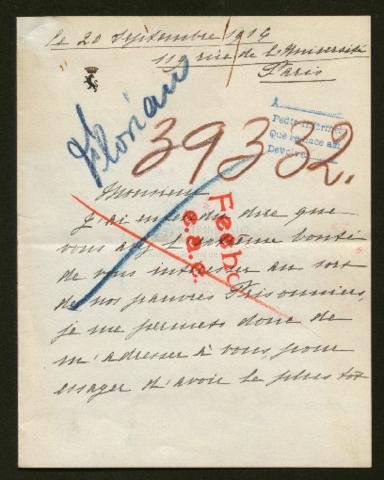 le 20 Septembre 1914
119 rue de l'Université
Paris
Floriano
A
Pedir informes
Que se hace así
Devolver
39332.
Monsieur
J'ai entendu dire que
vous avez l'extrême bonté
de vous intéresser au sort
de nos pauvres Prisonniers,
je me permets donc de
m'adresser à vous pour
essayer d'avoir le plus tôt
Fecho